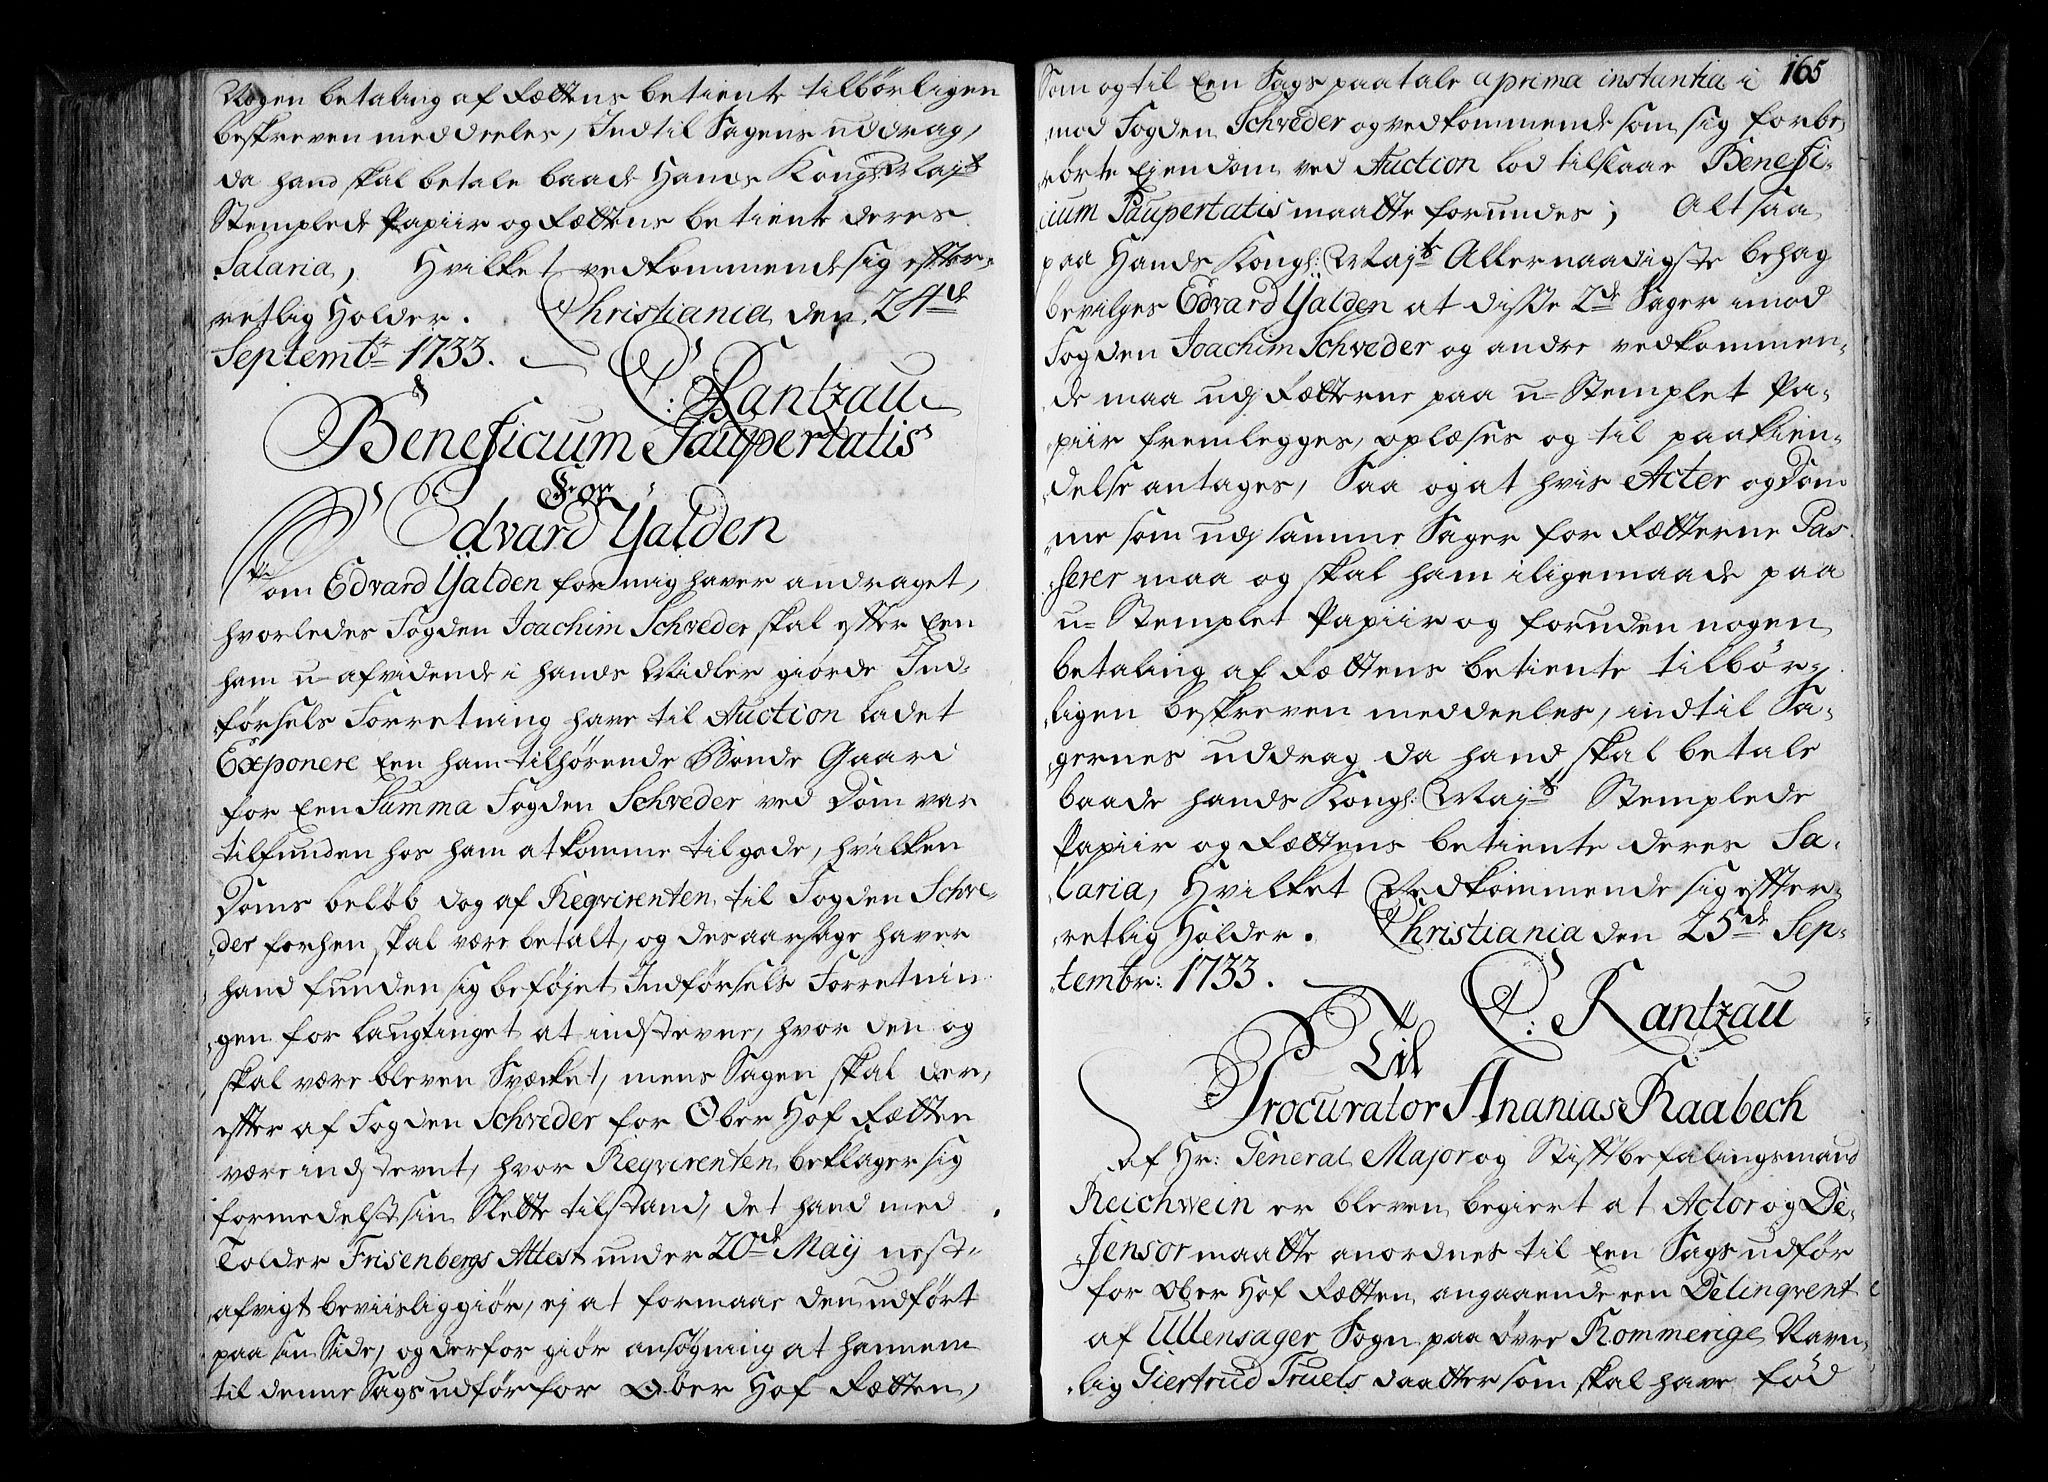 Nogen betaling af Rettens betiente tilbørligen
beskreven meddeeles, Indtil Sagens uddrag,
da hand skal betale baade Hans Kongl: Mayts
Stemplede Papiir og Rettens betiente deres
Salaria, Hvilket vedkommende sig efter-
retlig Holder. Christiania den 24de
Septembr 1733.
C: Rantzau
Beneficium Paupertatis
For
Edvard Yalden
Som Edvard Yalden for mig haver andraget,
hvorledes Fogden Joachim Schreder skal efter Een
ham u-afvidende i hands Midler giorde Ind-
førsels Forretning have til Auction ladet
Exponere Een ham tilhørende Bonde Gaard
for Een Summa Fogden Schreder ved Dom var
tilfunden hos ham at komme tilgode, hvilken
Doms beløb dog af Reqvirenten til Fogden Schre-
der forhen skal være betalt, og des aarsage haver
hand funden sig beføjet Indførsels Forretnin
gen for Laugtinget at indstevne, hvor den og
skal være bleven Svæcket, mens Sagen skal der,
efter af Fogden Schreder for Ober Hof Retten
være indstevnt, hvor Reqvirenten beklager sig
formedelst sin Slette tilstand, det hand med
Tolder Frisenbergs Attest under 20de Maij nest-
afvigt beviislig giør, ej at formaae den udført
paa sin Side, og derfor giør ansøgning at hannem
til denne Sags udfør for Ober Hof Retten,
165
Som og til Een Sags paatale a prima instantia i
mod Fogden Schreder og vedkommende som sig forbe
rørte Ejendom ved Auction lod tilslaae Benefi-
cium Paupertatis maatte forundes; Alt saa
paa Hands Kongl: Mayts Allernaadigste behag
bevilges Edvard Yalden at disse 2de Sager imod
Fogden Joachim Schreder og andre vedkommen-
de maa udj Retterne paa u-Stemplet Pa-
piir fremlegges, oplæses og til paakien-
delse antages, Saa og at hvis Acter og Dom
me som udj samme Sager for Retterne Pas
serer maa og skal ham iligemaade paa
u-Stemplet Papiir og foruden nogen
betaling af Rettens betiente tilbør-
ligen beskreven meddeeles, indtil Sa-
gernes uddrag da hand skal betale
baade hands Kongl: Mayts Stemplede
Papiir og Rettens betiente deres Sa-
laria, Hvilket Vedkommende sig efter-
retlig Holder. Christiania den 25de Sep-
tembr: 1733.
C: Rantzau
Til
Procurator Ananias Raabech
Af Hr: General Major og Stiftbefalingsmand
Reichwein er bleven begiert at Actor og De-
fensor maatte anordnes til Een Sags udfør
for Ober Hof Retten angaaende een Delinqvent
af Ullensager Sogn paa øvre Rommerige Navn-
lig Giertrud Truels daatter som skal have fød